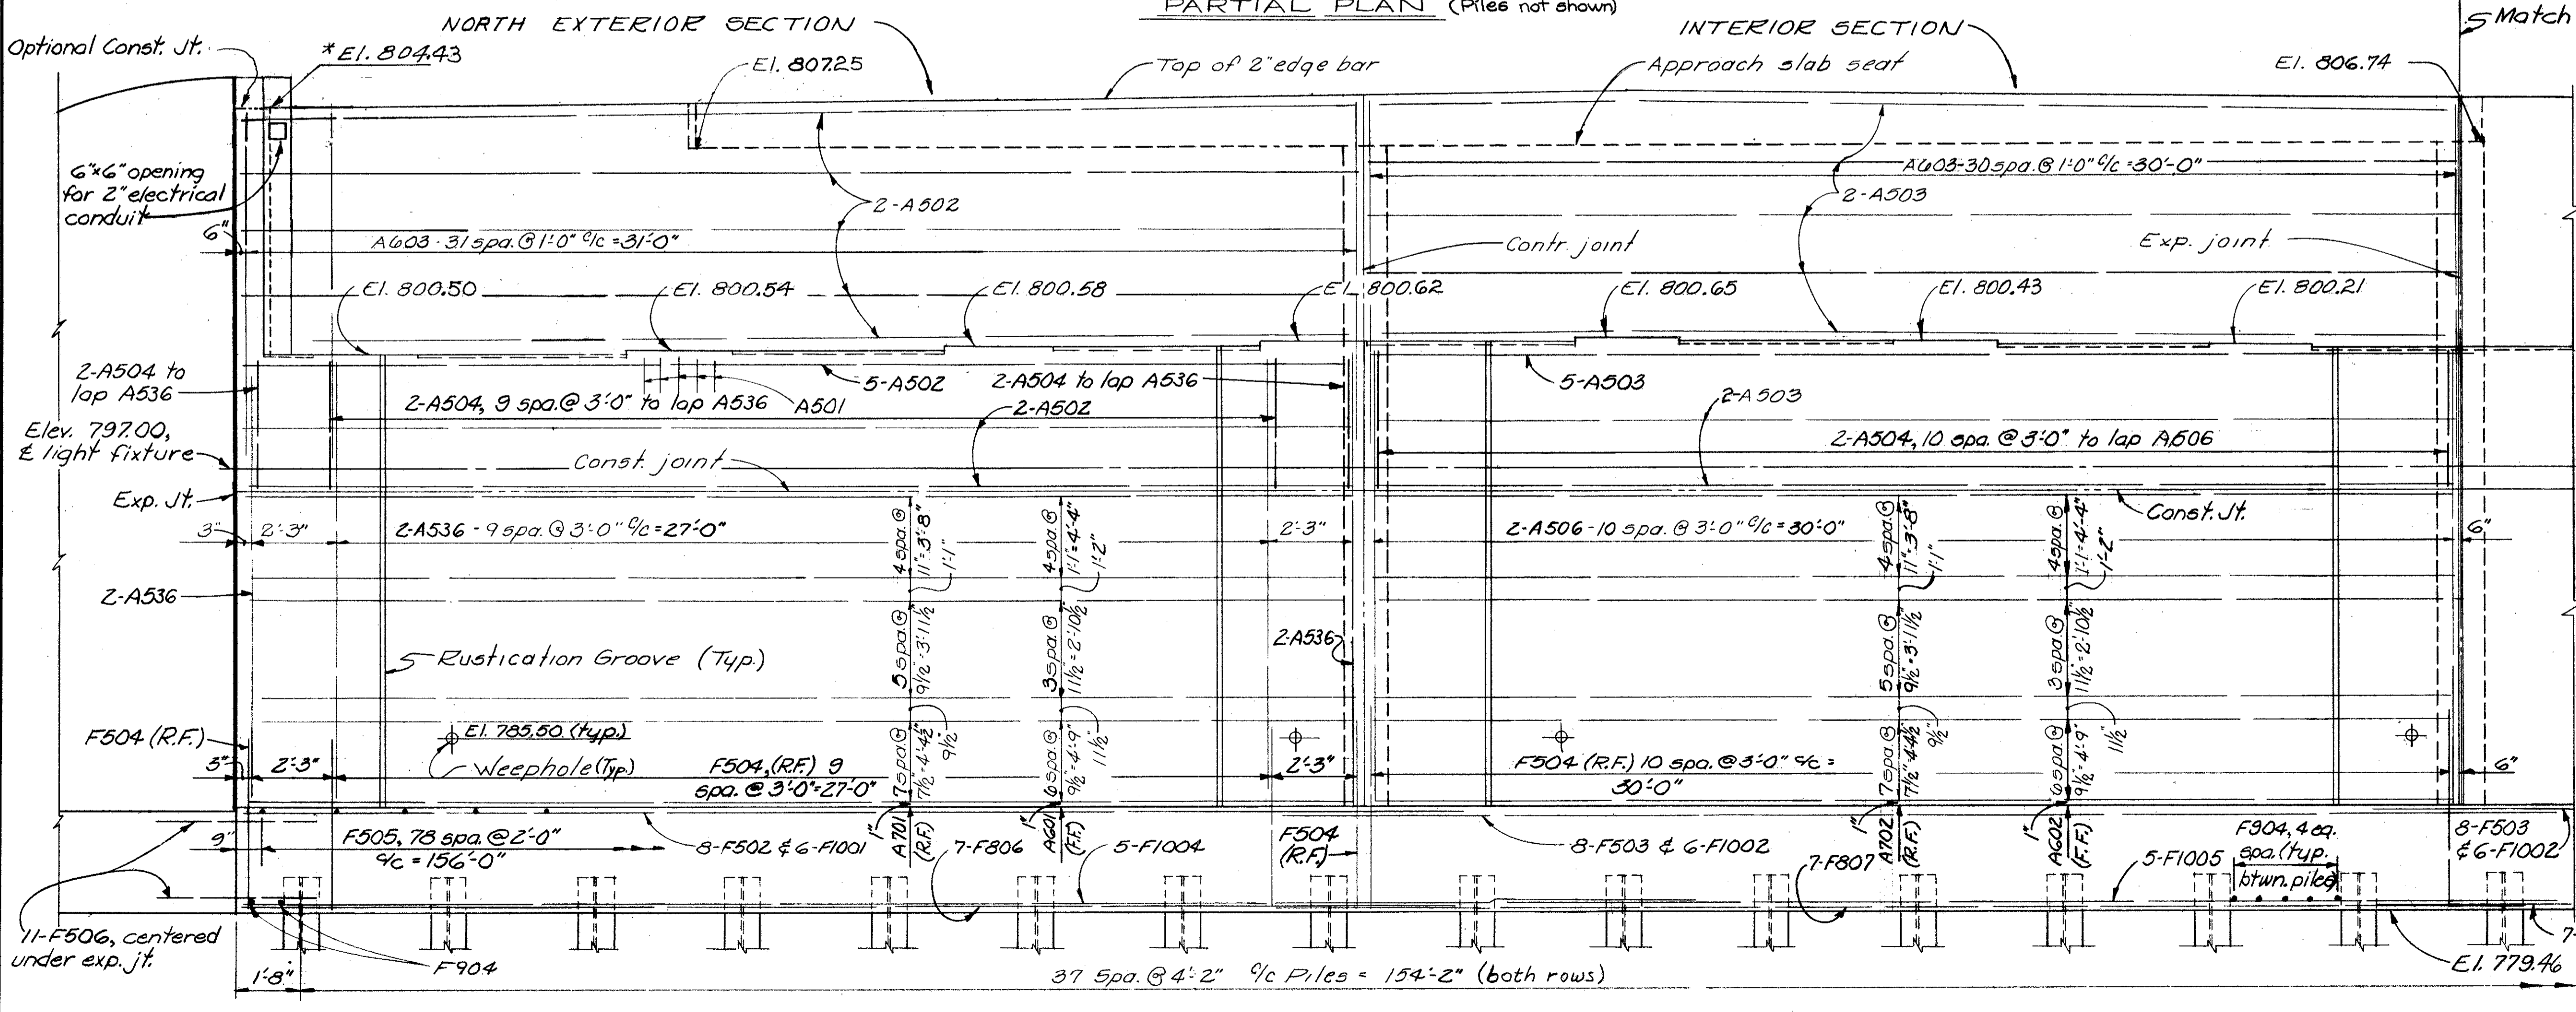 PARTIAL PLAN (Piles not shown)
NORTH EXTERIOR SECTION
INTERIOR SECTION
Match
Optional Const. Jt.
*El. 804.43
El. 807.25
Top of 2" edge bar
Approach slab seat
El. 806.74
6"x6" opening
for 2" electrical
conduit
6"
A603-31 spa. @ 1'-0" c/c = 31'-0"
2-A502
A603-30 spa. @ 1'-0" c/c = 30'-0"
2-A503
Contr. joint
Exp. joint
El. 800.50
El. 800.54
El. 800.58
El. 800.62
El. 800.65
El. 800.43
El. 800.21
2-A504 to
lap A536
2-A504, 9 spa. @ 3'-0" to lap A536
A501
5-A502
2-A504 to lap A536
2-A502
5-A503
2-A503
2-A504, 10 spa. @ 3'-0" to lap A506
Elev. 797.00,
℄ light fixture
Const. joint
Exp. Jt.
Const. Jt.
3"
2'-3"
2-A536 - 9 spa. @ 3'-0" c/c = 27'-0"
4 spa. @
11" = 3'-8"
1'-1"
4 spa. @
1'-1" = 4'-4"
1'-2"
2'-3"
2-A506 - 10 spa. @ 3'-0" c/c = 30'-0"
4 spa. @
11" = 3'-8"
1'-1"
4 spa. @
1'-1" = 4'-4"
1'-2"
6"
2-A536
5 spa. @
9 1/2" = 3'-11 1/2"
3 spa. @
11 1/2" = 2'-10 1/2"
2-A536
5 spa. @
9 1/2" = 3'-11 1/2"
3 spa. @
11 1/2" = 2'-10 1/2"
Rustication Groove (Typ.)
F504 (R.F.)
El. 785.50 (typ.)
Weephole (Typ.)
3"
2'-3"
F504, (R.F.) 9
spa. @ 3'-0" = 27'-0"
7 spa. @
7 1/2" = 4'-4 1/2"
9 1/2"
6 spa. @
9 1/2" = 4'-9"
11 1/2"
2'-3"
F504 (R.F.) 10 spa. @ 3'-0" c/c =
30'-0"
7 spa. @
7 1/2" = 4'-4 1/2"
9 1/2"
6 spa. @
9 1/2" = 4'-9"
11 1/2"
6"
9"
F505, 78 spa. @ 2'-0"
c/c = 156'-0"
8-F502 & 6-F1001
1"
A701
(R.F.)
7-F806
1"
A601
(F.F.)
5-F1004
F504
(R.F.)
8-F503 & 6-F1002
7-F807
1"
A702
(R.F.)
1"
A602
(F.F.)
5-F1005
F904, 4 eq.
spa. (typ.
btwn. piles)
8-F503
& 6-F1002
11-F506, centered
under exp. jt.
F904
1'-8"
37 Spa. @ 4'-2" c/c Piles = 154'-2" (both rows)
7-
El. 779.46